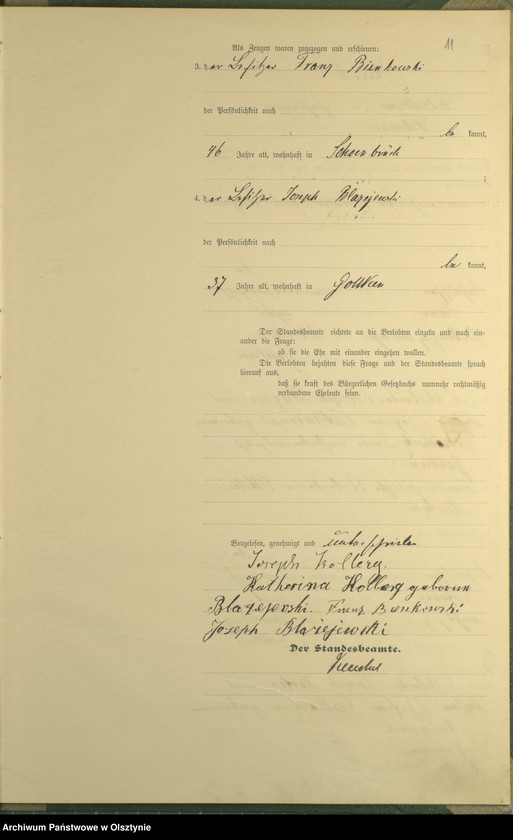 11
Als Zeugen waren zugezogen und erschienen:
3. der Besitzer Franz Bienkowski
der Persönlichkeit nach
be kannt,
46 Jahre alt, wohnhaft in Schoenbrück
4. der Besitzer Joseph Blazejewski
der Persönlichkeit nach
be kannt,
37 Jahre alt, wohnhaft in Gottken
Der Standesbeamte richtete an die Verlobten einzeln und nach ein-
ander die Frage:
ob sie die Ehe mit einander eingehen wollen.
Die Verlobten bejahten diese Frage und der Standesbeamte sprach
hierauf aus,
daß sie kraft des Bürgerlichen Gesetzbuchs nunmehr rechtmäßig
verbundene Eheleute seien.
Vorgelesen, genehmigt und unterschrieben
Joseph Kolberg.
Katherina Kolberg geborene
Blazejewski. Franz Bienkowski
Joseph Blażejewski
Der Standesbeamte.
Archiwum Państwowe w Olsztynie